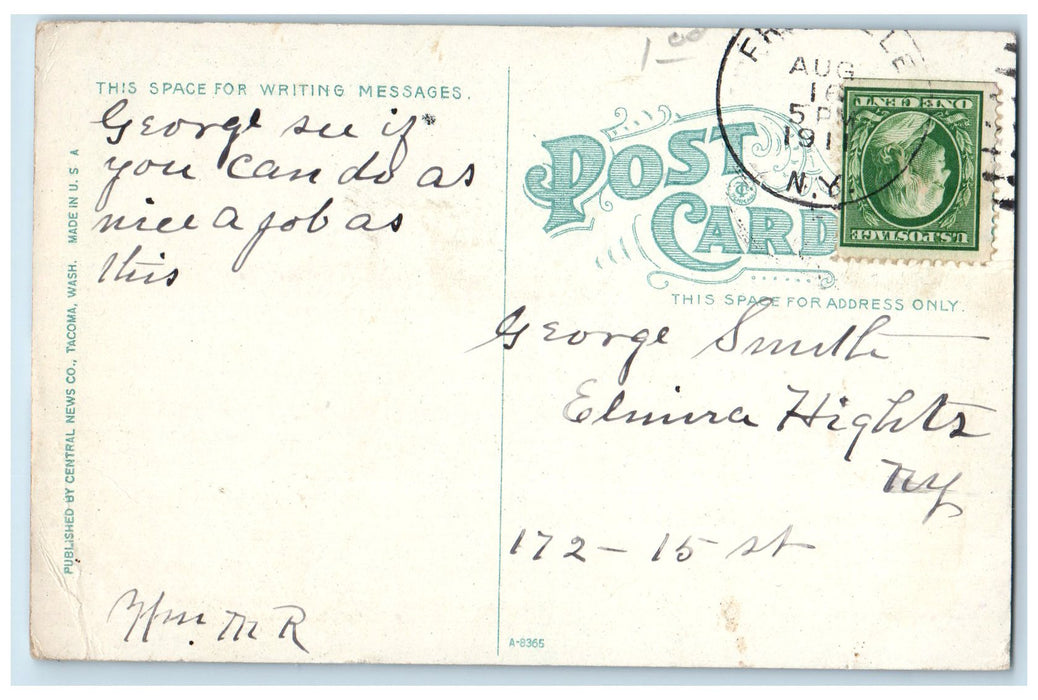 THIS SPACE FOR WRITING MESSAGES.
George see if
you can do as
nice a job as
this
Wm. M R
PUBLISHED BY CENTRAL NEWS CO., TACOMA, WASH. MADE IN U. S. A
1 00
POST
CARD
AUG
16
5 PM
1911
N.Y.
ONE CENT
U.S. POSTAGE
THIS SPACE FOR ADDRESS ONLY.
George Smith
Elmira Hights
NY
172 - 15 st
A-8365